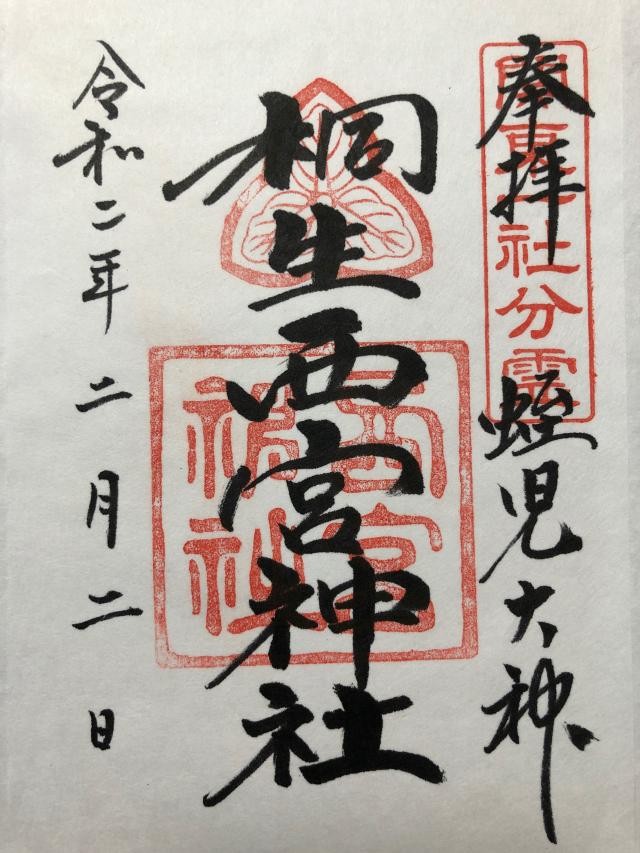 奉拝
蛭児大神
桐生西宮神社
令和二年二月二日
西宮神社
社分霊